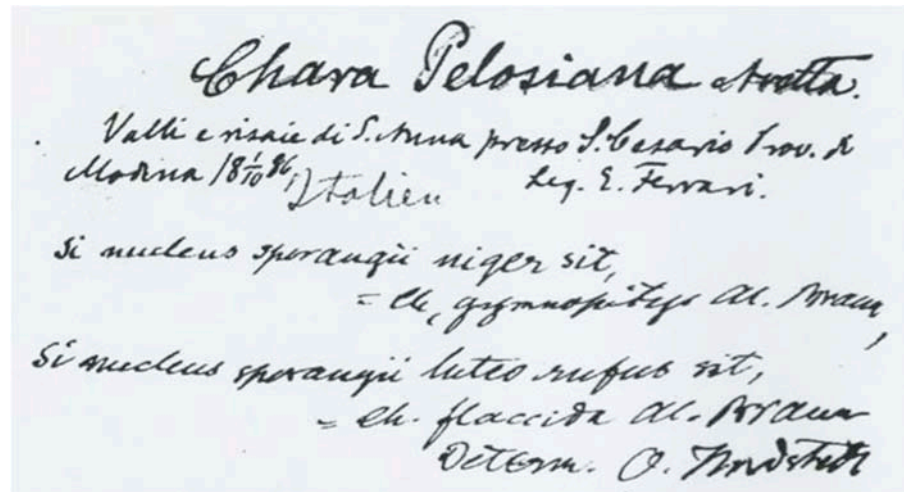 Chara Pelosiana Avetta.
Valli e risaie di S. Anna presso S. Cesario Prov. di
Modena 18 1/10 86, Italien Leg. E. Ferrari.
Si nucleus sporangii niger sit,
= Ch. gymnopitys Al. Braun,
Si nucleus sporangii luteo rufus sit,
= Ch. flaccida Al. Braun
Determ. O. Nordstedt